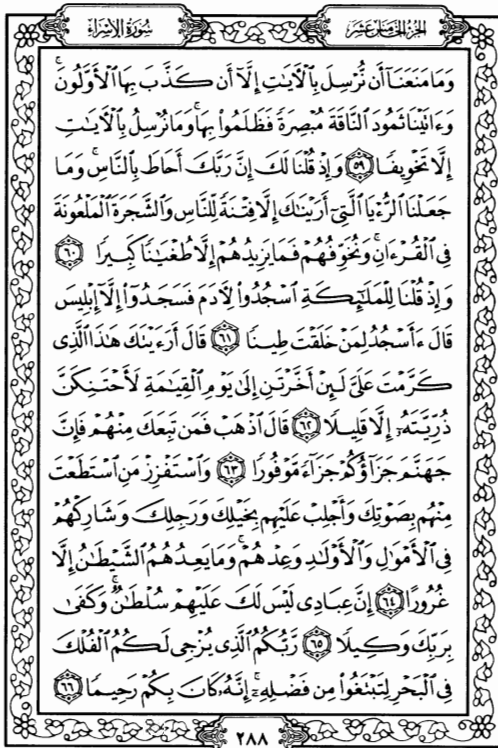 الجزء الخامس عشر
سورة الإسراء
وَمَا مَنَعَنَآ أَن نُّرْسِلَ بِٱلْأٓيَٰتِ إِلَّآ أَن كَذَّبَ بِهَا ٱلْأَوَّلُونَ ۚ
وَءَاتَيْنَا ثَمُودَ ٱلنَّاقَةَ مُبْصِرَةً فَظَلَمُوا۟ بِهَا ۚ وَمَا نُرْسِلُ بِٱلْأٓيَٰتِ
إِلَّا تَخْوِيفًا ٥٩ وَإِذْ قُلْنَا لَكَ إِنَّ رَبَّكَ أَحَاطَ بِٱلنَّاسِ ۚ وَمَا
جَعَلْنَا ٱلرُّءْيَا ٱلَّتِىٓ أَرَيْنَٰكَ إِلَّا فِتْنَةً لِّلنَّاسِ وَٱلشَّجَرَةَ ٱلْمَلْعُونَةَ
فِى ٱلْقُرْءَانِ ۚ وَنُخَوِّفُهُمْ فَمَا يَزِيدُهُمْ إِلَّا طُغْيَٰنًا كَبِيرًا ٦٠
وَإِذْ قُلْنَا لِلْمَلَٰٓئِكَةِ ٱسْجُدُوا۟ لِءَادَمَ فَسَجَدُوٓا۟ إِلَّآ إِبْلِيسَ
قَالَ ءَأَسْجُدُ لِمَنْ خَلَقْتَ طِينًا ٦١ قَالَ أَرَءَيْتَكَ هَٰذَا ٱلَّذِى
كَرَّمْتَ عَلَىَّ لَئِنْ أَخَّرْتَنِ إِلَىٰ يَوْمِ ٱلْقِيَٰمَةِ لَأَحْتَنِكَنَّ
ذُرِّيَّتَهُۥٓ إِلَّا قَلِيلًا ٦٢ قَالَ ٱذْهَبْ فَمَن تَبِعَكَ مِنْهُمْ فَإِنَّ
جَهَنَّمَ جَزَآؤُكُمْ جَزَآءً مَّوْفُورًا ٦٣ وَٱسْتَفْزِزْ مَنِ ٱسْتَطَعْتَ
مِنْهُم بِصَوْتِكَ وَأَجْلِبْ عَلَيْهِم بِخَيْلِكَ وَرَجِلِكَ وَشَارِكْهُمْ
فِى ٱلْأَمْوَٰلِ وَٱلْأَوْلَٰدِ وَعِدْهُمْ ۚ وَمَا يَعِدُهُمُ ٱلشَّيْطَٰنُ إِلَّا
غُرُورًا ٦٤ إِنَّ عِبَادِى لَيْسَ لَكَ عَلَيْهِمْ سُلْطَٰنٌ ۚ وَكَفَىٰ
بِرَبِّكَ وَكِيلًا ٦٥ رَّبُّكُمُ ٱلَّذِى يُزْجِى لَكُمُ ٱلْفُلْكَ
فِى ٱلْبَحْرِ لِتَبْتَغُوا۟ مِن فَضْلِهِۦٓ ۚ إِنَّهُۥ كَانَ بِكُمْ رَحِيمًا ٦٦
٢٨٨